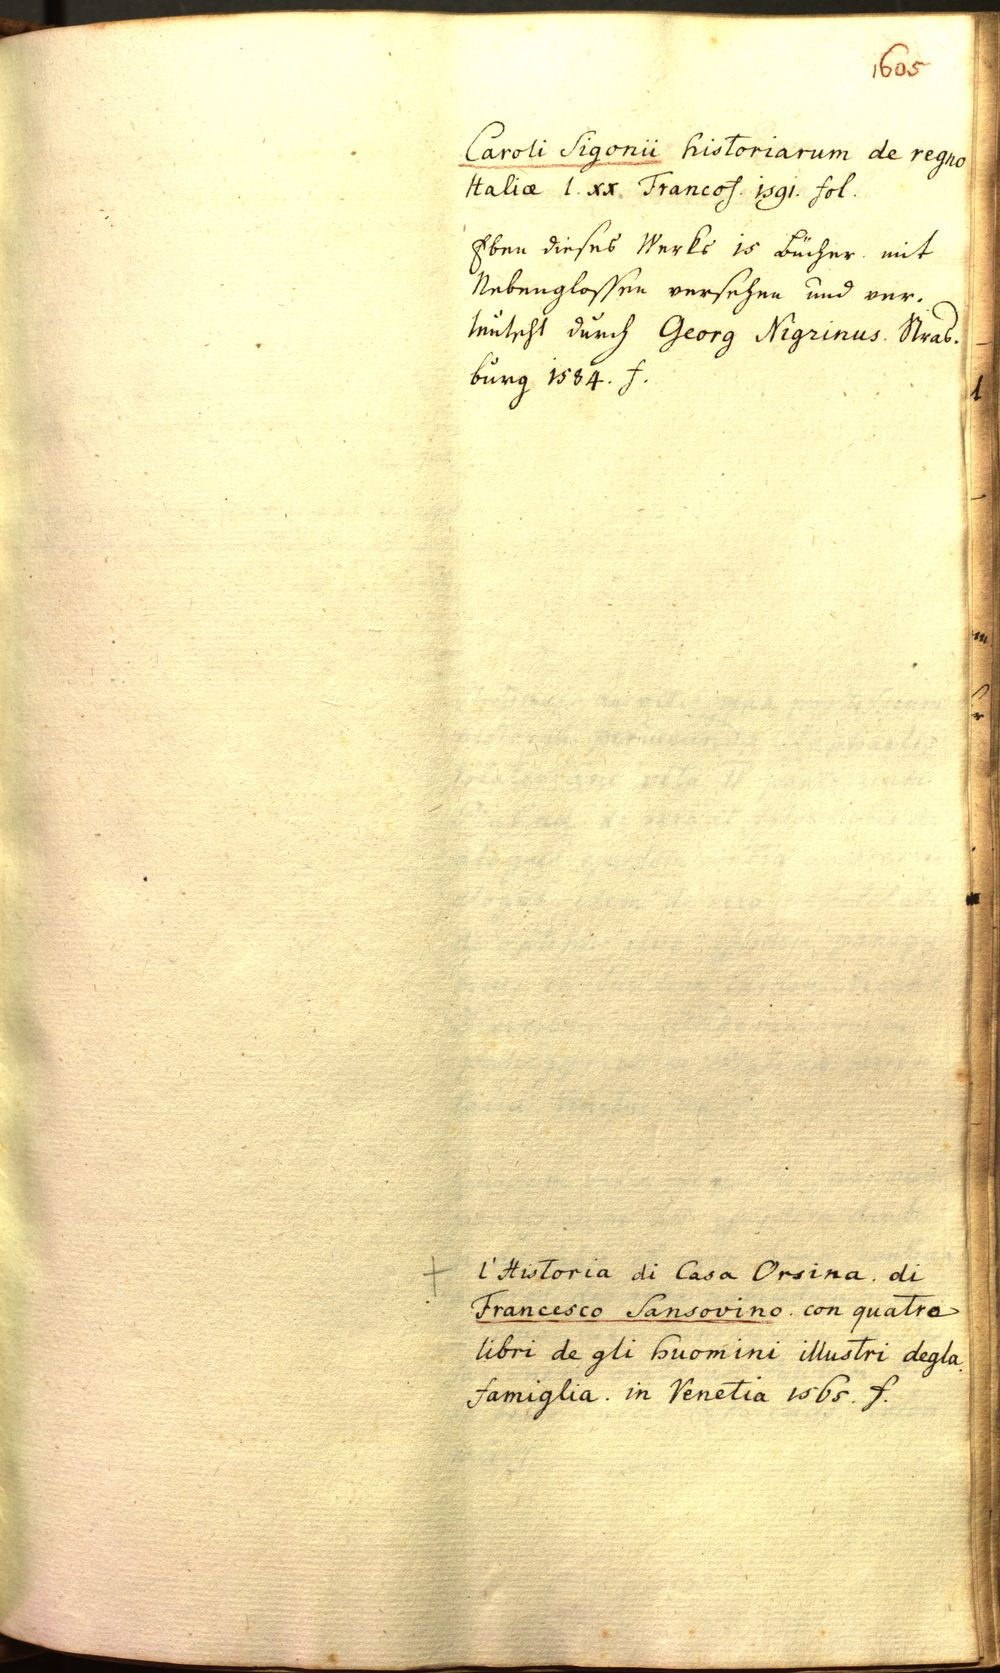 1605
Caroli Sigonii historiarum de regno
Italiæ l. xx. Francof. 1591. fol.
Eben dieses Werks 15 Bücher. mit
Nebenglossen versehen und ver-
teutscht durch Georg Nigrinus. Stras-
burg 1584. f.
+ l'Historia di Casa Orsina. di
Francesco Sansovino. con quatro
libri de gli huomini illustri degla
famiglia. in Venetia 1565. f.